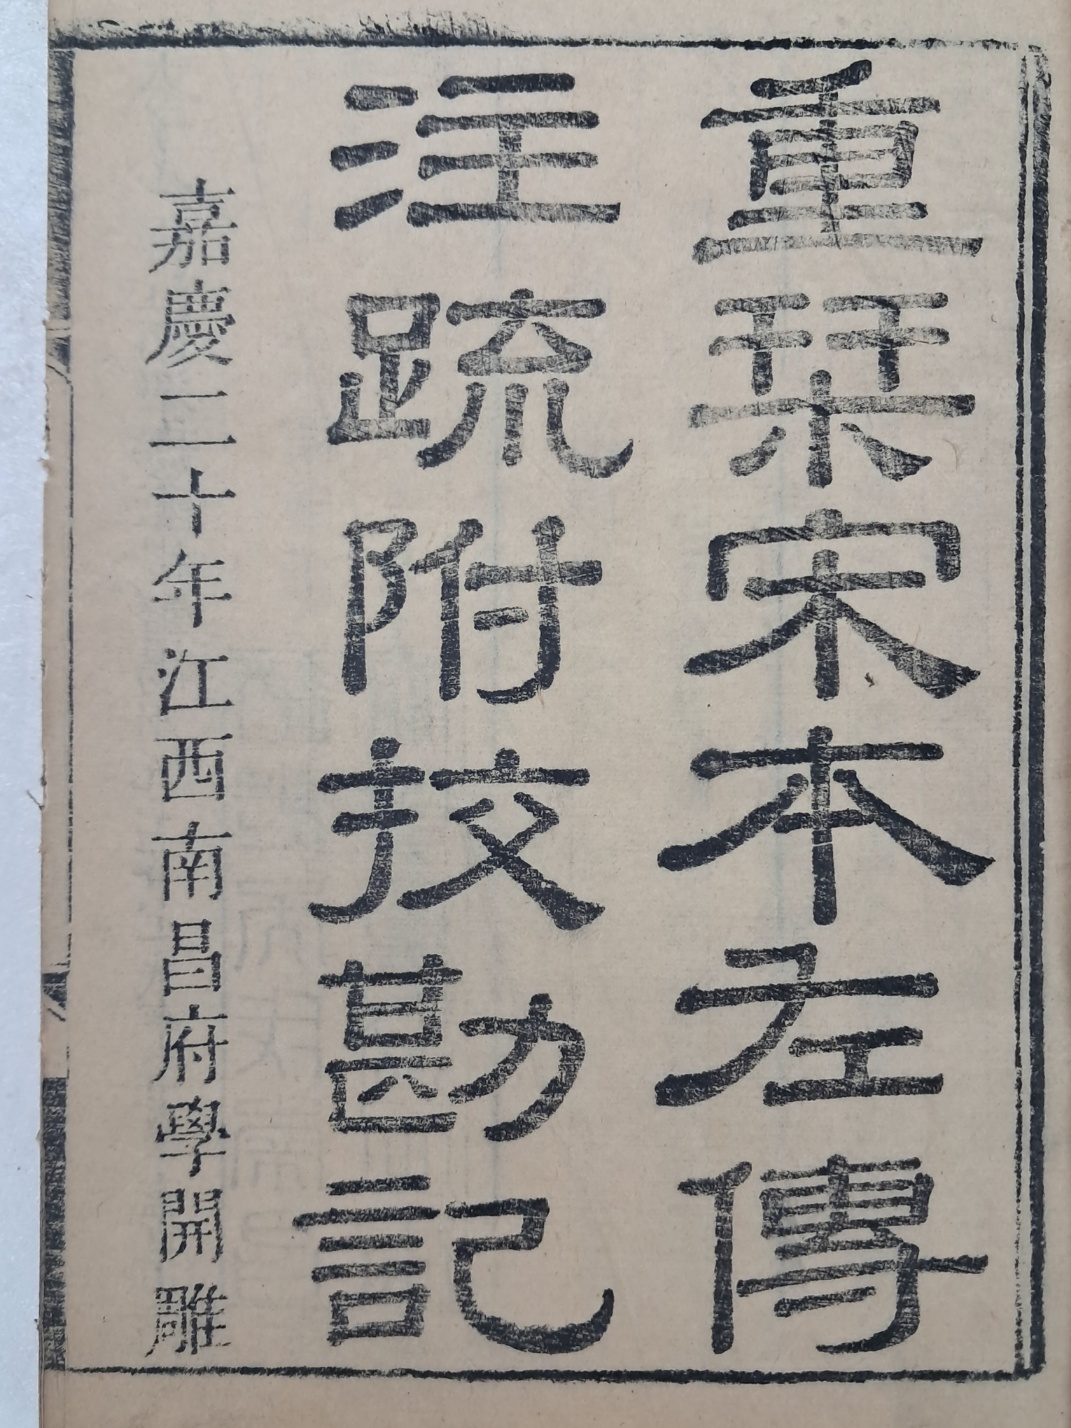 重栞宋本左傳
注疏附挍勘記
嘉慶二十年江西南昌府學開雕